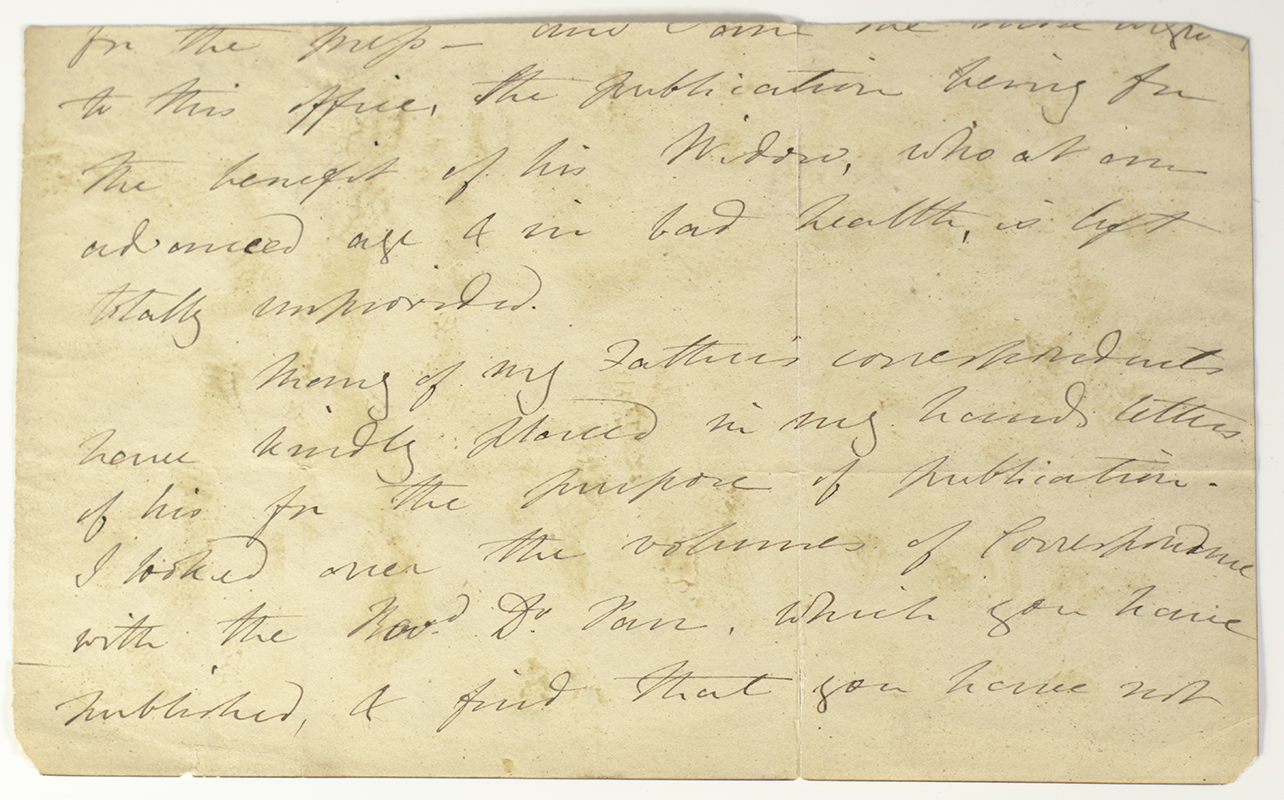 for the press – and
to this office, the publication being for
the benefit of his Widow, who at an
advanced age & in bad health, is left
totally unprovided.
Many of my Father's correspondents
have kindly placed in my hands letters
of his for the purpose of publication.
I looked over the volumes of Correspondence
with the Revd Dr Parr, which you have
published, & find that you have not